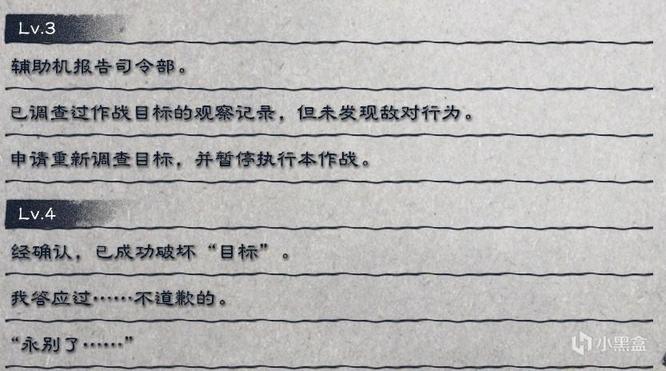 Lv.3
辅助机报告司令部。
已调查过作战目标的观察记录，但未发现敌对行为。
申请重新调查目标，并暂停执行本作战。
Lv.4
经确认，已成功破坏“目标”。
我答应过……不道歉的。
“永别了……”
小黑盒